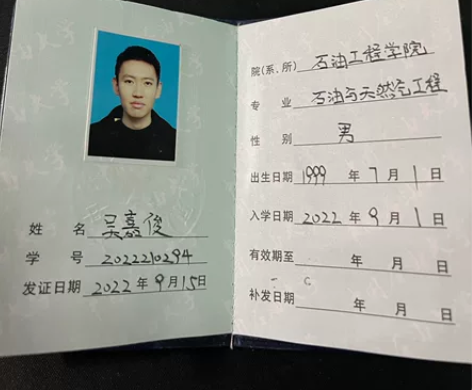 姓 名 吴嘉俊
学 号 2022210294
发证日期 2022 年 9 月 15 日
院(系、所) 石油工程学院
专 业 石油与天然气工程
性 别 男
出生日期 1999 年 7 月 1 日
入学日期 2022 年 9 月 1 日
有效期至 年 月 日
补发日期 年 月 日